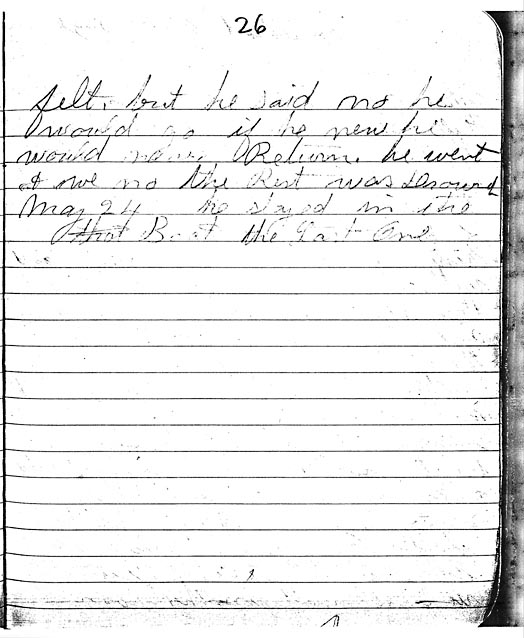 26
felt. but he said no he
would go if he new he
would never Return. he went
& we no the Rest was
May 24 he stayed in the
that Boat the Last One